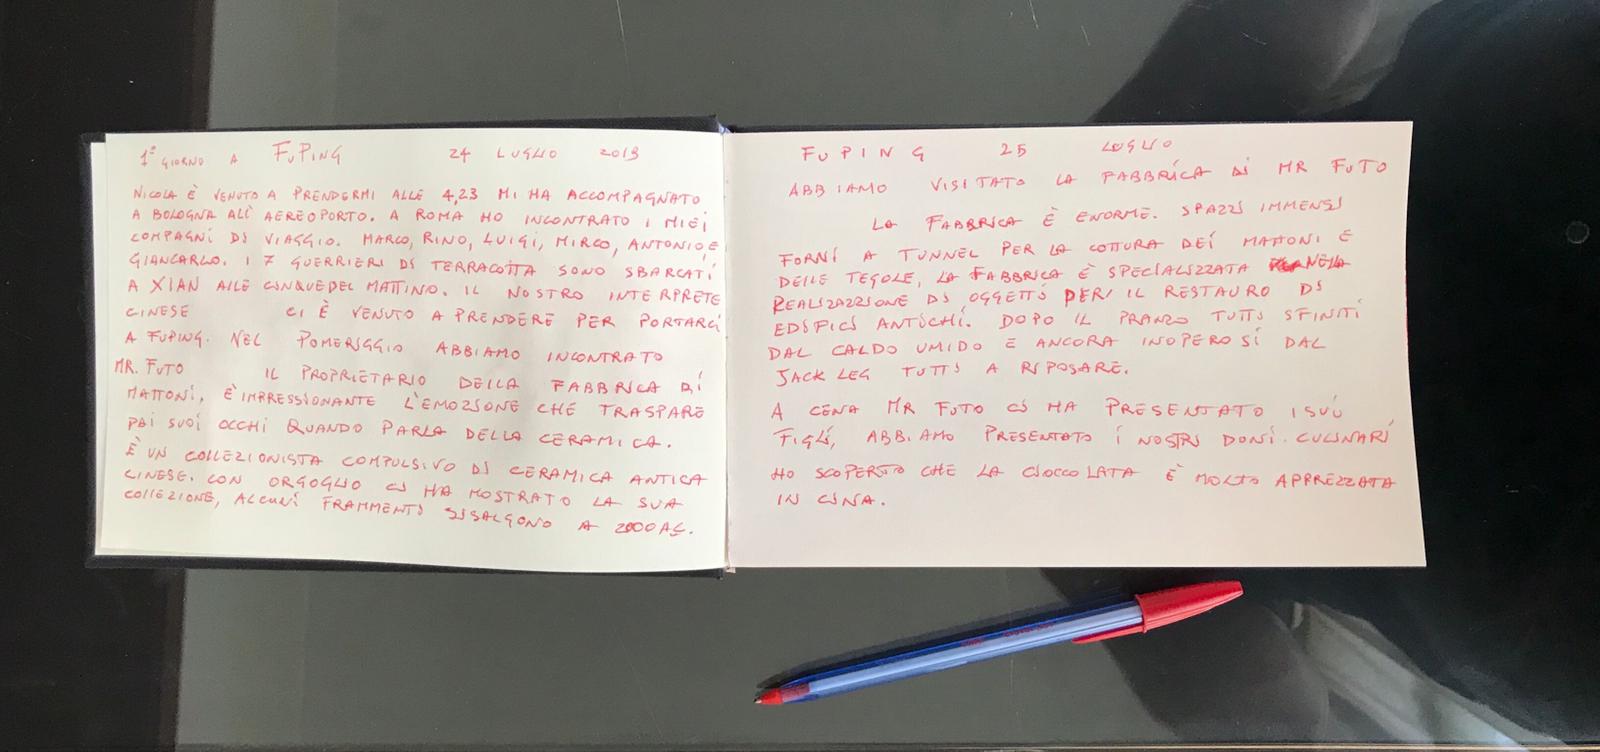 1° GIORNO A FUPING 24 LUGLIO 2019
NICOLA È VENUTO A PRENDERMI ALLE 4,23 MI HA ACCOMPAGNATO
A BOLOGNA ALL'AEREOPORTO. A ROMA HO INCONTRATO I MIEI
COMPAGNI DI VIAGGIO. MARCO, RINO, LUIGI, MIRCO, ANTONIO E
GIANCARLO. I 7 GUERRIERI DI TERRACOTTA SONO SBARCATI
A XIAN ALLE CINQUE DEL MATTINO. IL NOSTRO INTERPRETE
CINESE CI È VENUTO A PRENDERE PER PORTARCI
A FUPING. NEL POMERIGGIO ABBIAMO INCONTRATO
MR. FUTO IL PROPRIETARIO DELLA FABBRICA DI
MATTONI, È IMPRESSIONANTE L'EMOZIONE CHE TRASPARE
DAI SUOI OCCHI QUANDO PARLA DELLA CERAMICA.
È UN COLLEZIONISTA COMPULSIVO DI CERAMICA ANTICA
CINESE. CON ORGOGLIO CI HA MOSTRATO LA SUA
COLLEZIONE, ALCUNI FRAMMENTI SISALGONO A 2000 AC.
FUPING 25 LUGLIO
ABBIAMO VISITATO LA FABBRICA DI MR FUTO
LA FABBRICA È ENORME. SPAZI IMMENSI
FORNI A TUNNEL PER LA COTTURA DEI MATTONI E
DELLE TEGOLE, LA FABBRICA È SPECIALIZZATA NELLA
REALIZZAZIONE DI OGGETTI PER IL RESTAURO DI
EDIFICI ANTICHI. DOPO IL PRANZO TUTTI SFINITI
DAL CALDO UMIDO E ANCORA INOPEROSI DAL
JACK LEG TUTTI A RIPOSARE.
A CENA MR FUTO CI HA PRESENTATO I SUOI
FIGLI, ABBIAMO PRESENTATO I NOSTRI DONI CULINARI
HO SCOPERTO CHE LA CIOCCOLATA È MOLTO APPREZZATA
IN CINA.